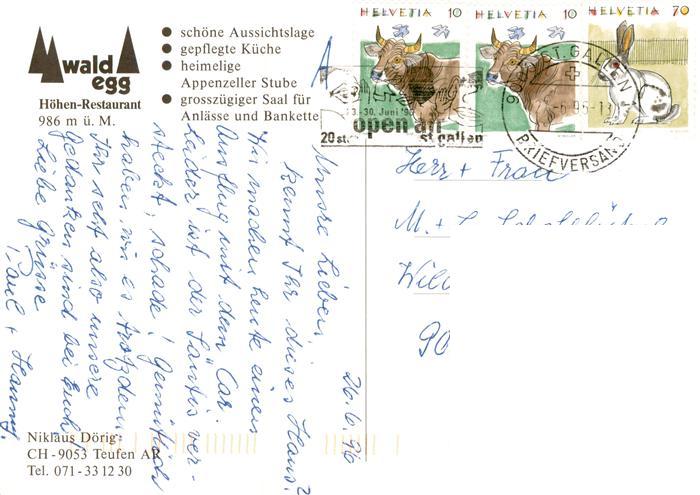 Wald
egg
Höhen-Restaurant
986 m ü. M.
● schöne Aussichtslage
● gepflegte Küche
● heimelige
Appenzeller Stube
● grosszügiger Saal für
Anlässe und Bankette
HELVETIA 10
HELVETIA 10
HELVETIA 70
ST. GALLEN
BRIEFVERSAND
30. Juni
20 st.
open air
st. gallen
26.6.96
Unsere Lieben,
kennt Ihr dieses Haus?
Wir machen heute einen
Ausflug mit dem Car.
Leider ist der Säntis ver-
steckt, schade! Gemütlich
haben wir es trotzdem.
Ihr seht also unsere
Gedanken sind bei Euch!
Liebe Grüsse
Paul + Hanny.
Herr + Frau
M. +
90
Niklaus Dörig
CH - 9053 Teufen AR
Tel. 071 - 33 12 30